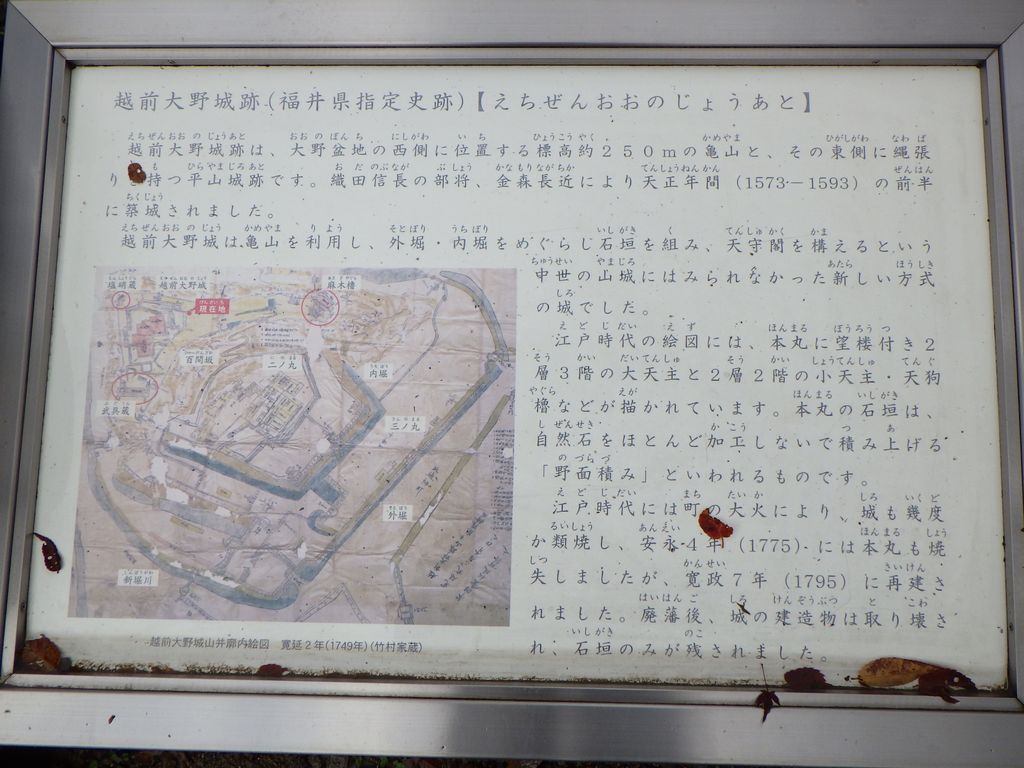 越前大野城跡(福井県指定史跡)【えちぜんおおのじょうあと】
越前大野城跡は、大野盆地の西側に位置する標高約250mの亀山と、その東側に縄張
り 持つ平山城跡です。織田信長の部将、金森長近により天正年間(1573-1593)の前半
に築城されました。
越前大野城は亀山を利用し、外堀・内堀をめぐらし石垣を組み、天守閣を構えるという
中世の山城にはみられなかった新しい方式
の城でした。
江戸時代の絵図には、本丸に望楼付き2
層3階の大天主と2層2階の小天主・天狗
櫓などが描かれています。本丸の石垣は、
自然石をほとんど加工しないで積み上げる
「野面積み」といわれるものです。
江戸時代には町の大火により、城も幾度
か類焼し、安永4年(1775)には本丸も焼
失しましたが、寛政7年(1795)に再建さ
れました。廃藩後、城の建造物は取り壊さ
れ、石垣のみが残されました。
塩硝蔵
越前大野城
現在地
麻木櫓
百間坂
二ノ丸
内堀
武具蔵
三ノ丸
外堀
新堀川
越前大野城山并廓内絵図 寛延2年(1749年)(竹村家蔵)